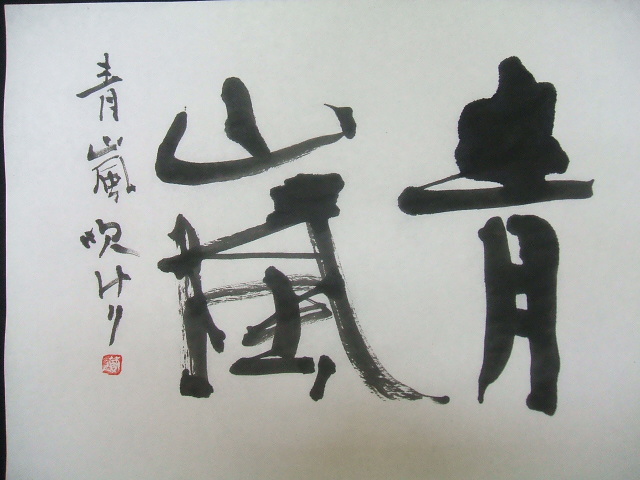 青嵐
青嵐吹けり